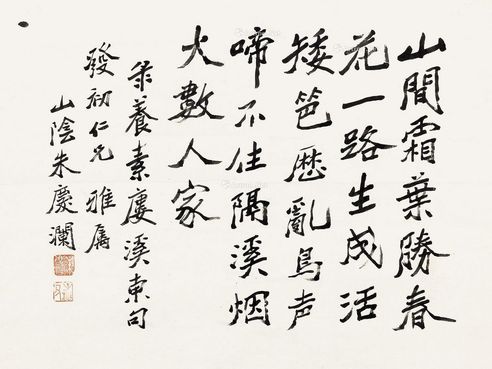 山間霜葉勝春
花一路生成活
矮笆歷亂鳥声
啼不住隔溪烟
火數人家
录養素廔溪東句
發初仁兄 雅屬
山陰朱慶瀾